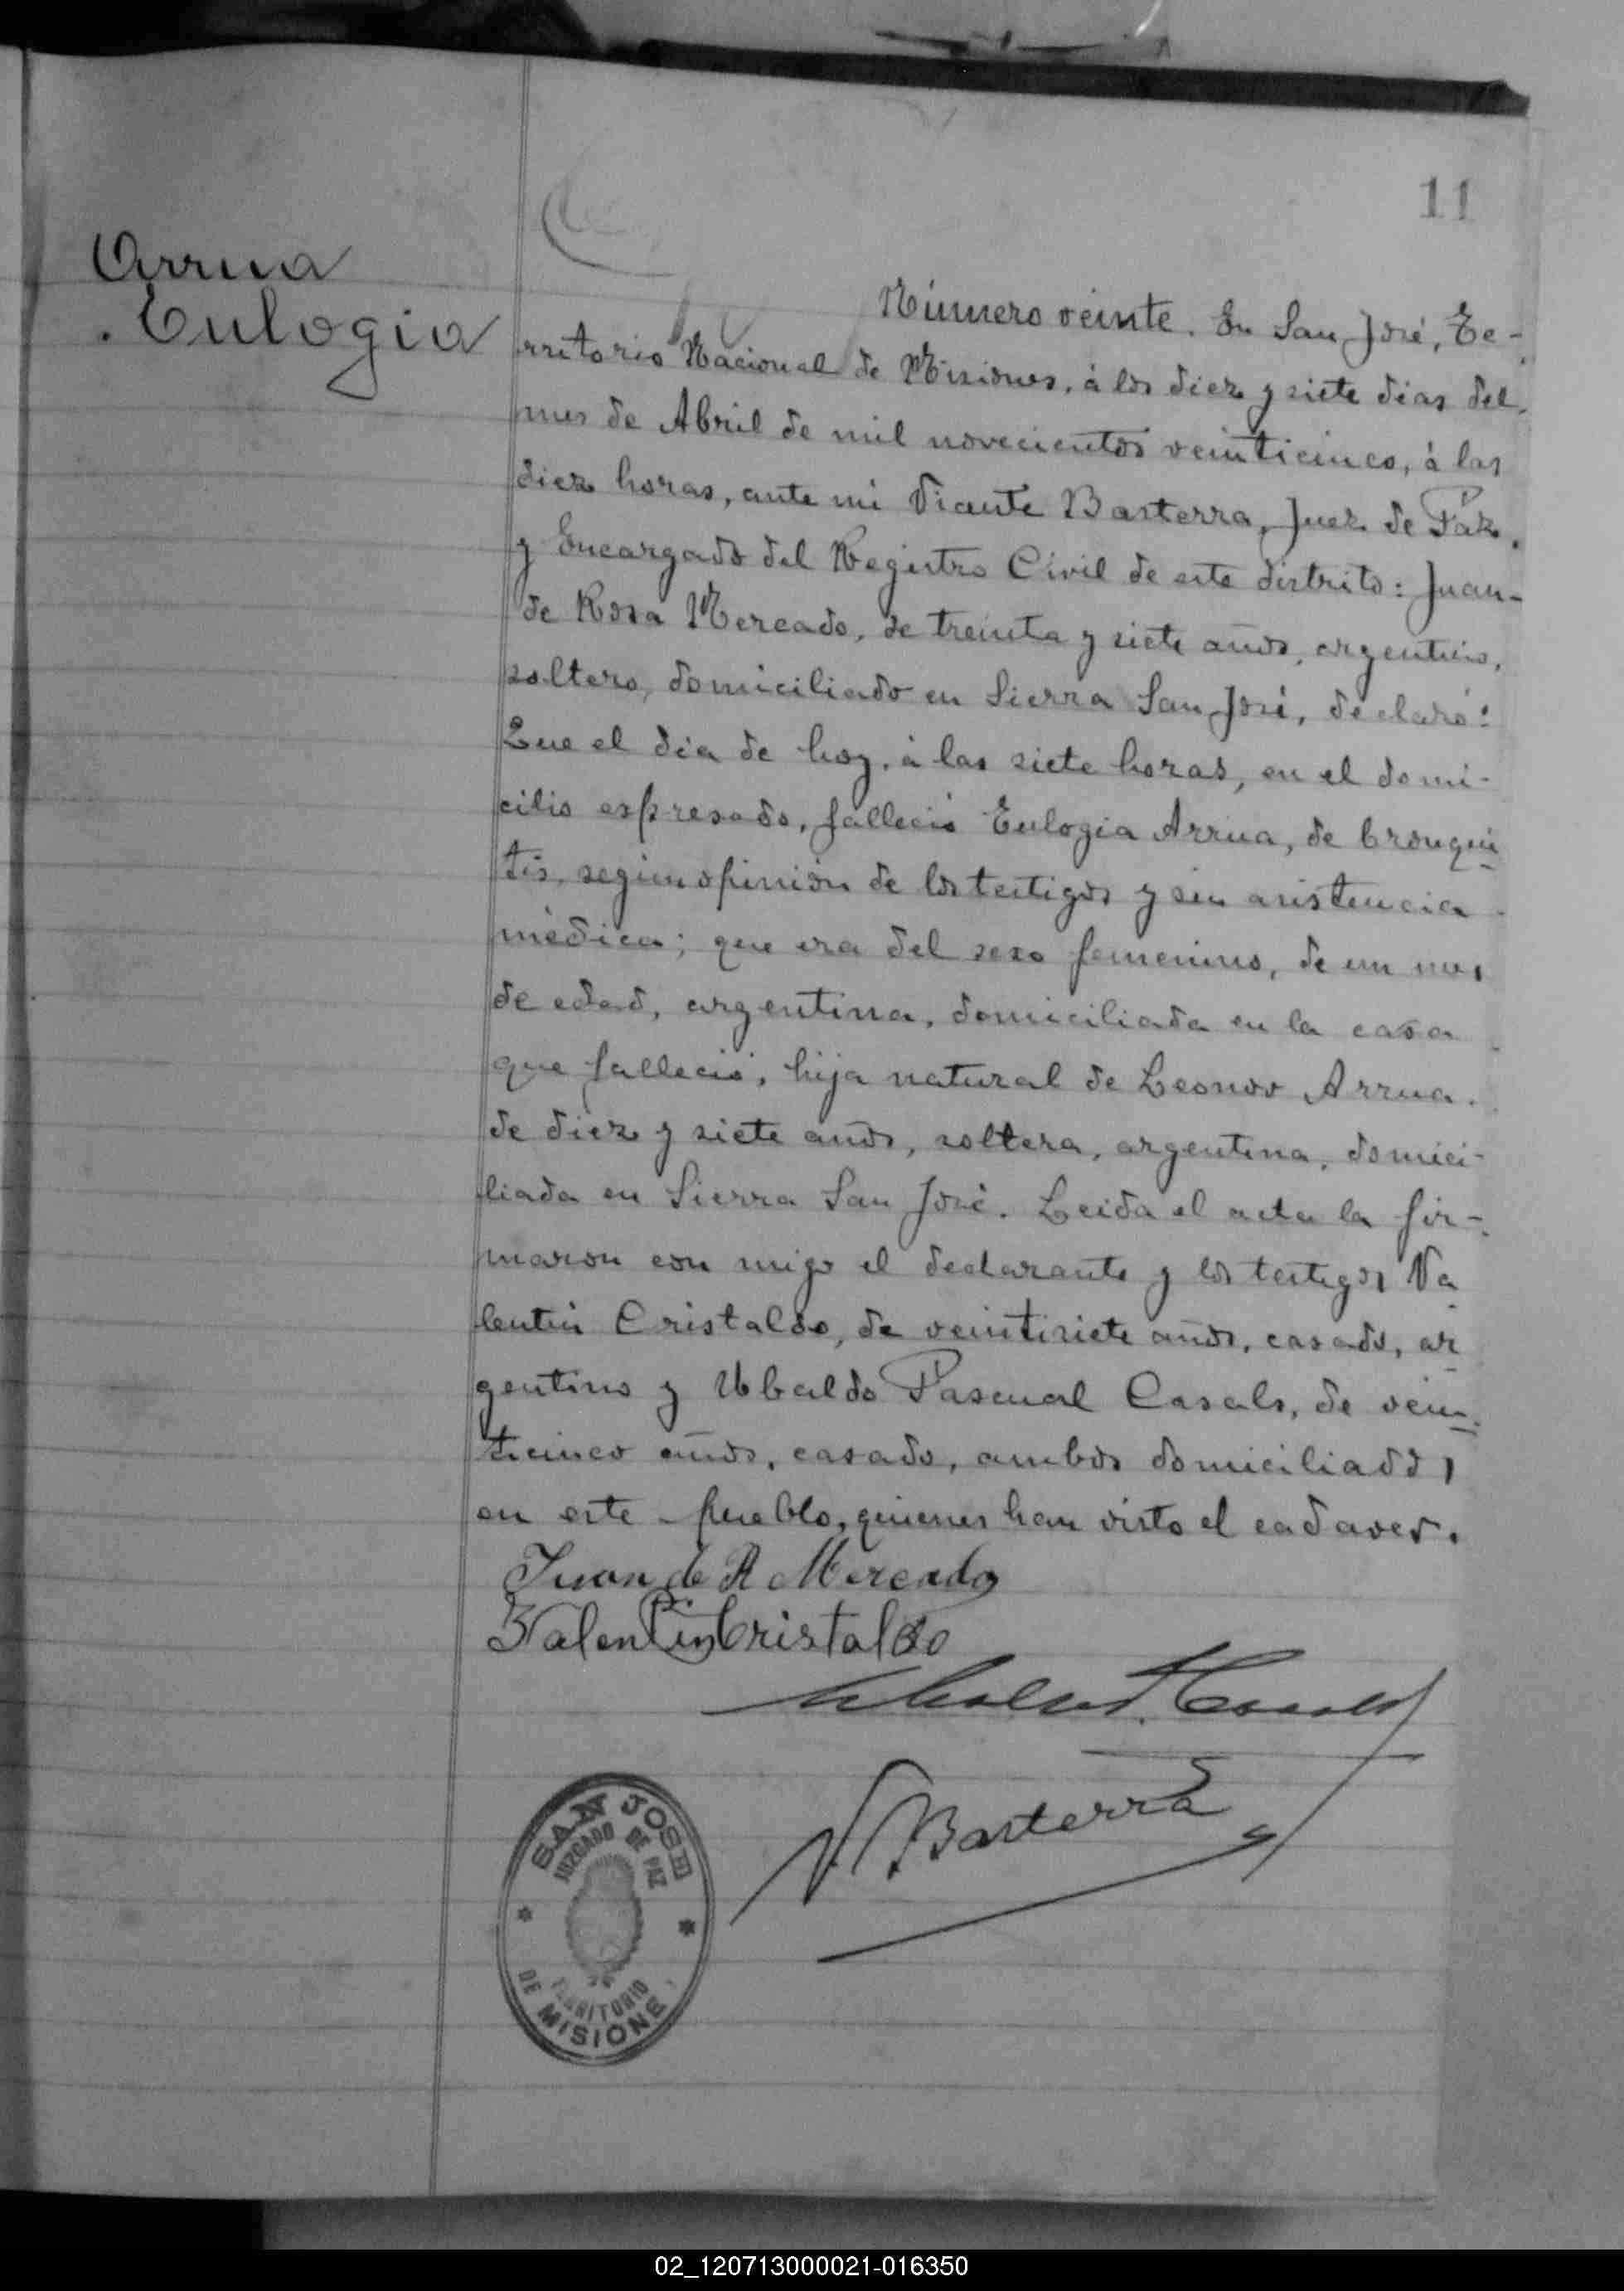 11
Arrua
Eulogia
Número veinte. En San José, Te-
rritorio Nacional de Misiones, á los diez y siete dias del
mes de Abril de mil novecientos veinticinco, á las
diez horas, ante mi Vicente Basterra, Juez de Paz
y Encargado del Registro Civil de este distrito: Juan
de Rosa Mercado, de treinta y siete años, argentino,
soltero, domiciliado en Sierra San José, declaró:
Que el dia de hoy, á las siete horas, en el domi-
cilio expresado, falleció Eulogia Arrua, de bronqui
tis, según opinión de los testigos y sin asistencia
médica; que era del sexo femenino, de un mes
de edad, argentina, domiciliada en la casa
que falleció, hija natural de Leonor Arrua.
de diez y siete años, soltera, argentina, domici-
liada en Sierra San José. Leida el acta la fir-
maron con migo el declarante y los testigos Va
lentin Cristaldo, de veintisiete años, casado, ar
gentino y Ubaldo Pascual Casals, de vein
ticinco años, casado, ambos domiciliados
en este pueblo, quienes han visto el cadaver.
Juan de R Mercado
Valentin Cristaldo
V Basterra
SAN JOSE
JUZGADO DE PAZ
TERRITORIO
DE MISIONE
02_120713000021-016350